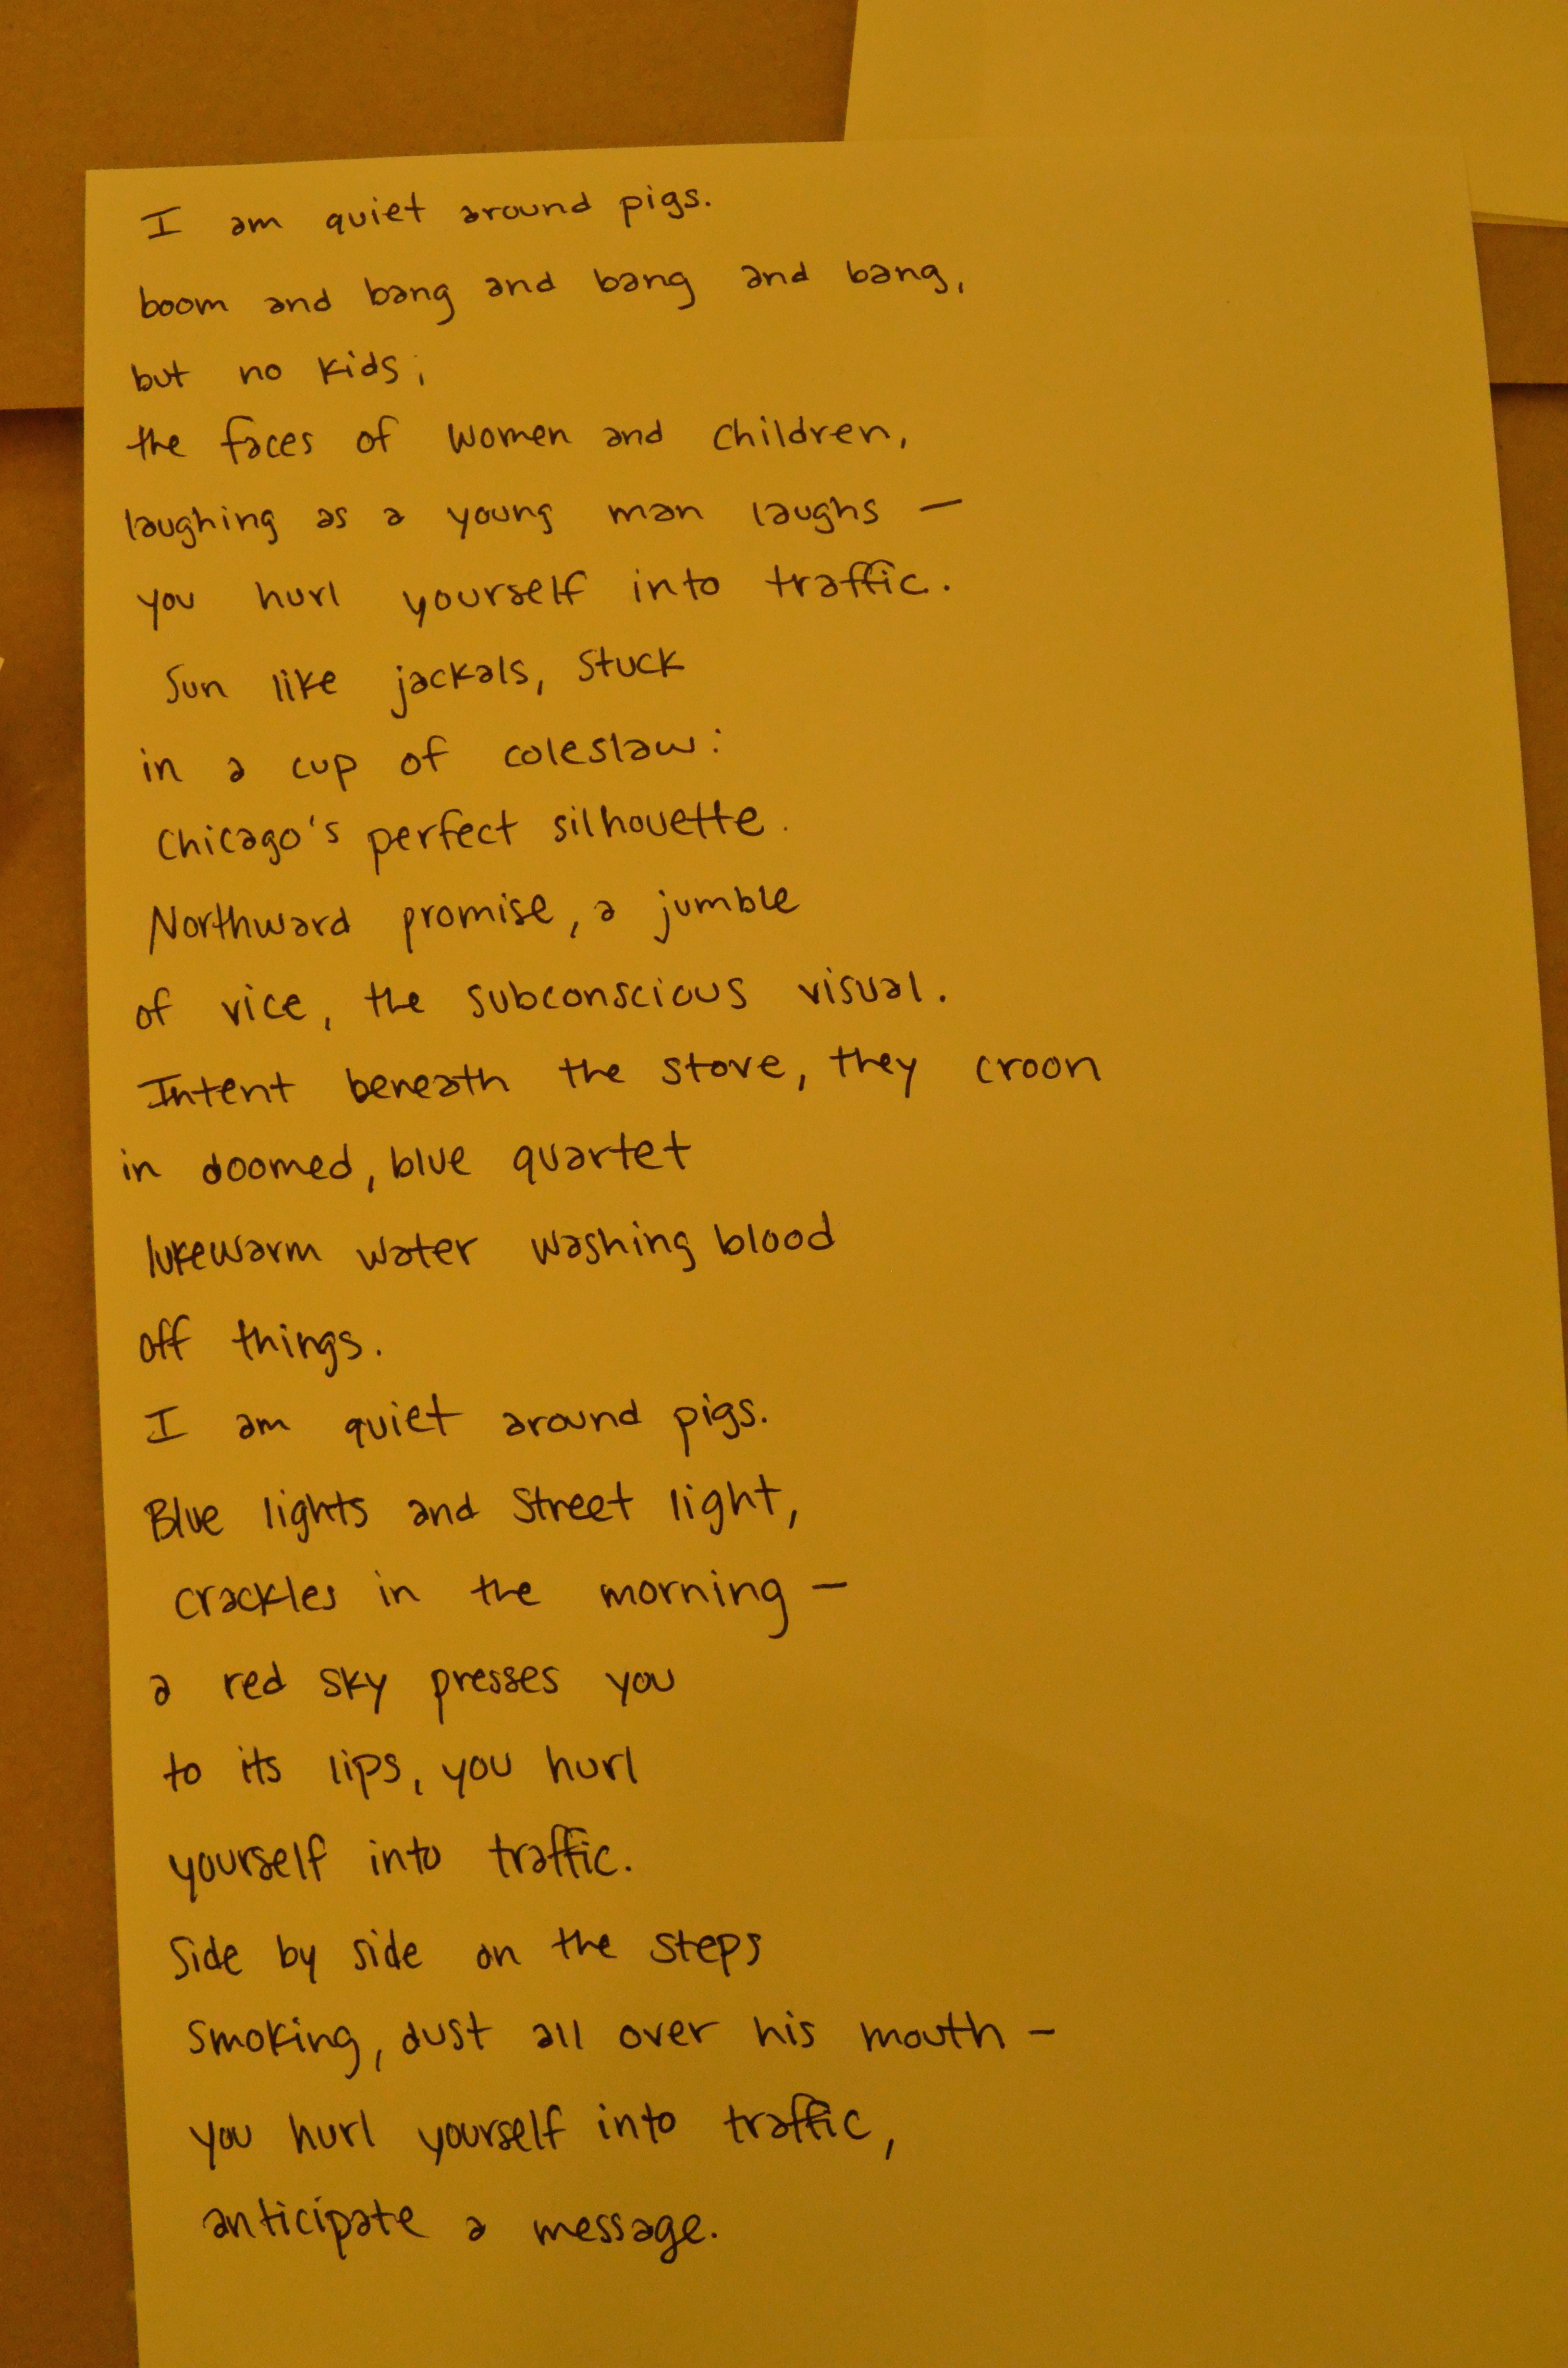 I am quiet around pigs.
boom and bang and bang and bang,
but no kids;
the faces of women and children,
laughing as a young man laughs —
you hurl yourself into traffic.
Sun like jackals, stuck
in a cup of coleslaw:
Chicago's perfect silhouette.
Northward promise, a jumble
of vice, the subconscious visual.
Intent beneath the stove, they croon
in doomed, blue quartet
lukewarm water washing blood
off things.
I am quiet around pigs.
Blue lights and street light,
crackles in the morning —
a red sky presses you
to its lips, you hurl
yourself into traffic.
Side by side on the steps
smoking, dust all over his mouth —
you hurl yourself into traffic,
anticipate a message.